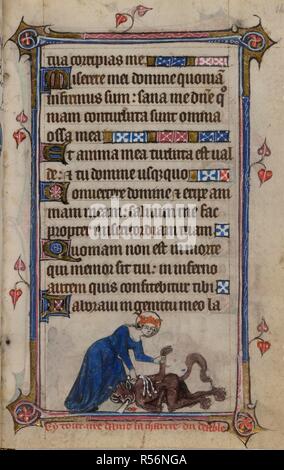 tua corripias me
Miserere mei domine quoniam
infirmus sum: sana me dñe q̄
niam conturbata sunt omnia
ossa mea
Et anima mea turbata est ual
de: & tu domine usquequo
Conuertere domine & eripe ani
mam meam: saluum me fac
propter misericordiam tuam
Quoniam non est in morte
qui memor sit tui: in inferno
autem quis confitebitur tibi
Laboraui in gemitu meo la
alamy
Image ID: R56NGA
www.alamy.com